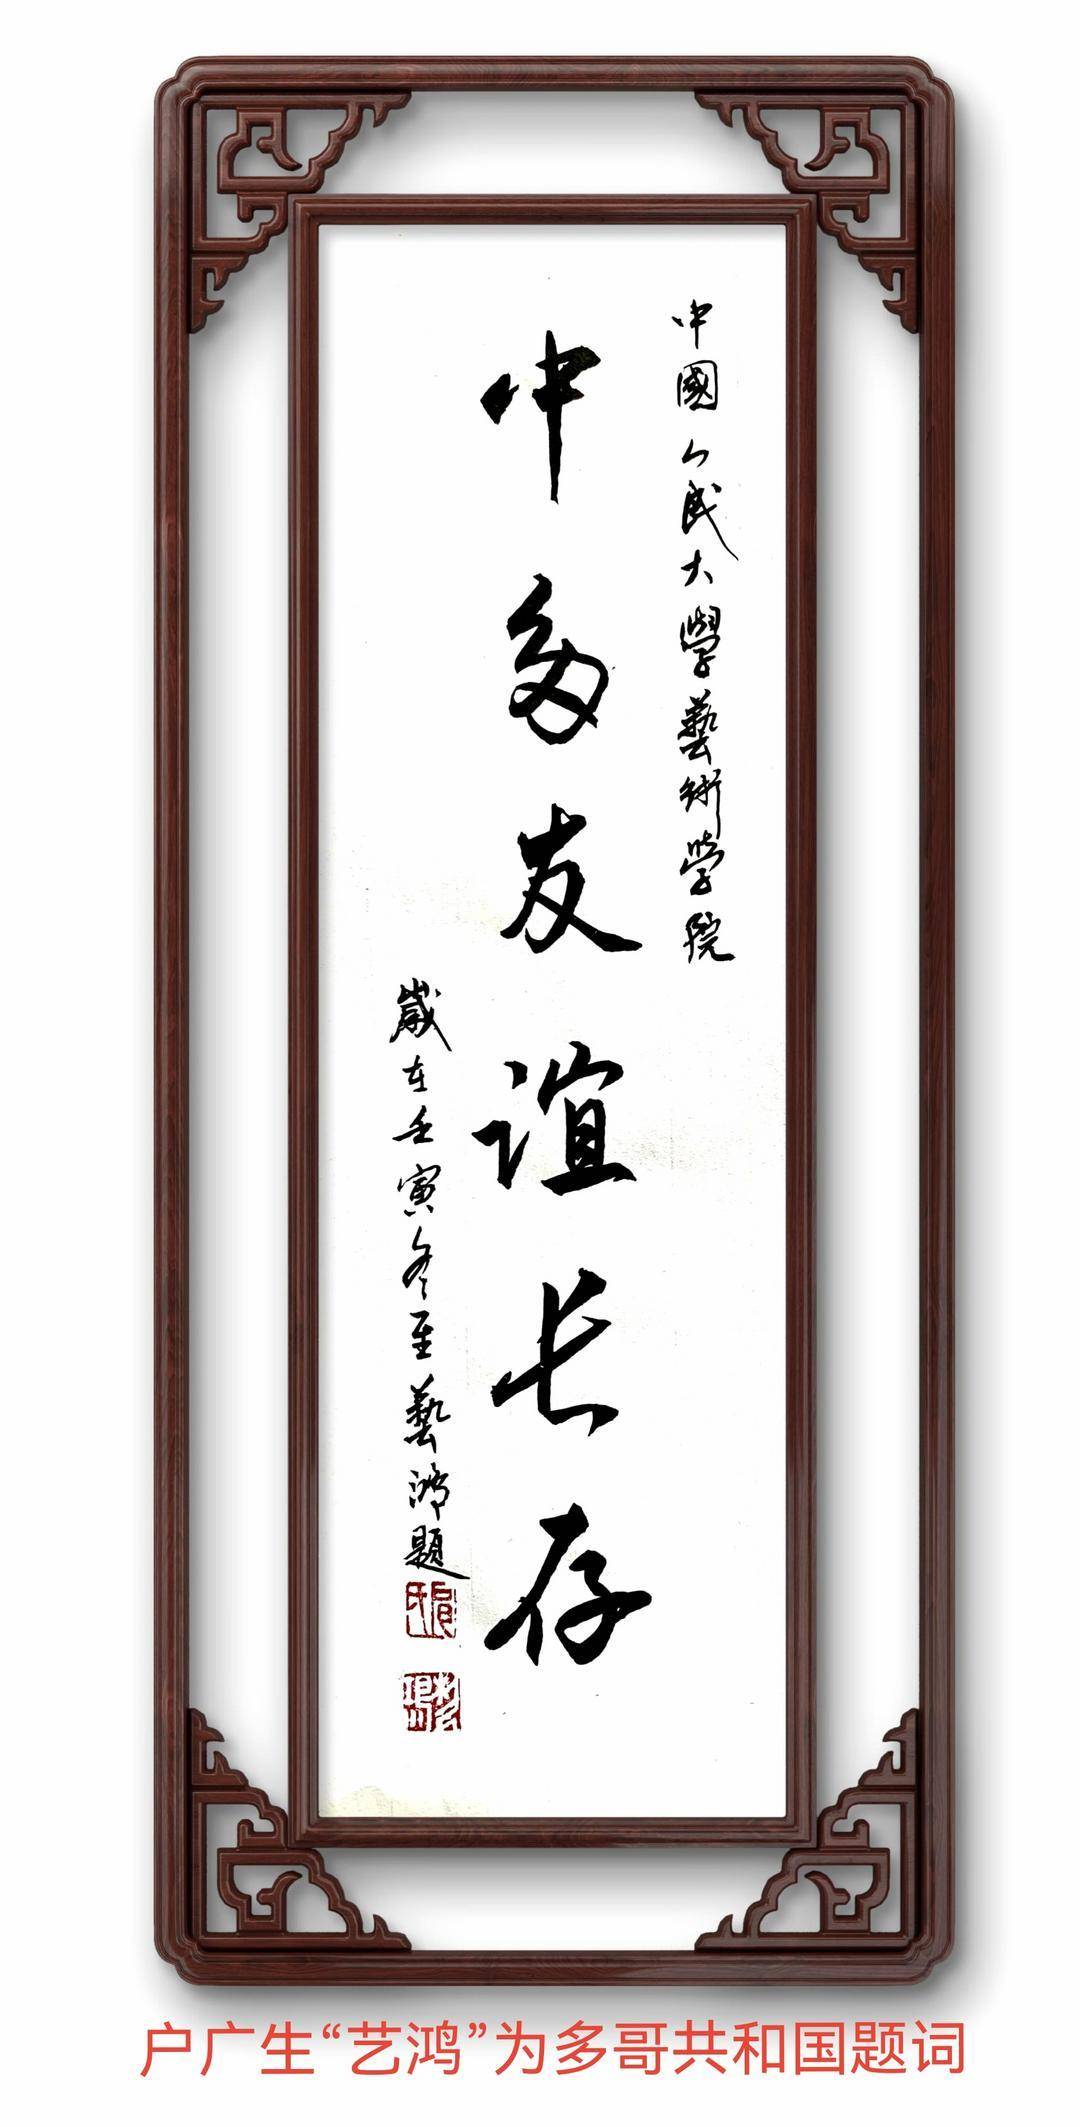 中國人民大學藝術学院
中多友谊长存
歲在壬寅冬至藝鸿题
户广生“艺鸿”为多哥共和国题词